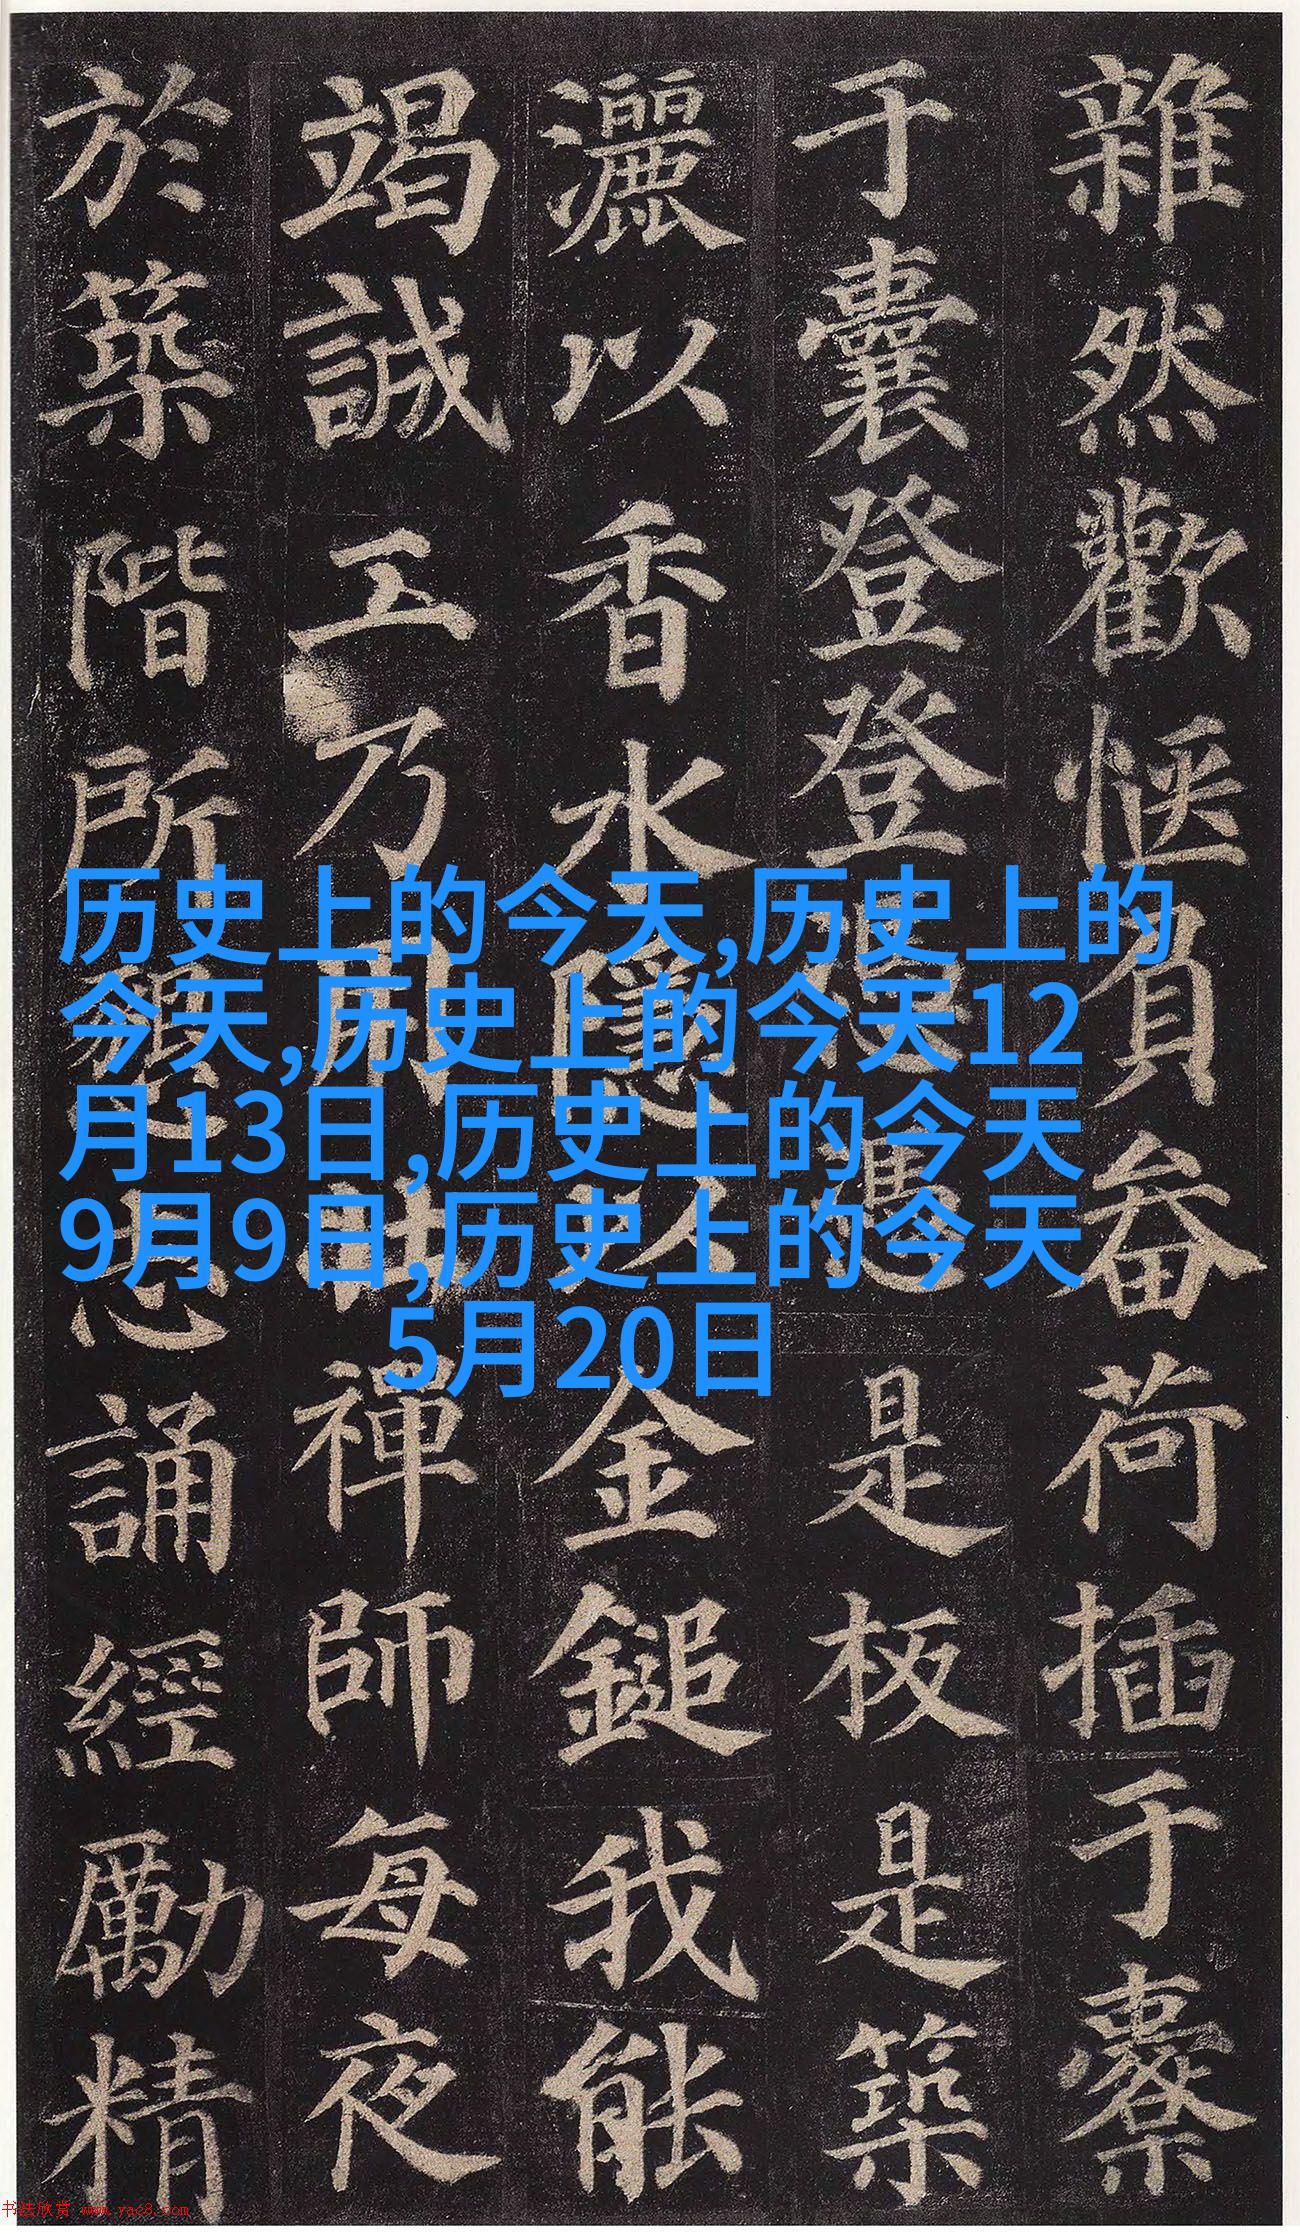 雜然歡愜負畚荷插于橐
于囊登登憑憑是板是築
灑以香水隱以金鎚我能
竭誠工乃用壯禪師每夜
於築階所懇志誦經勵精
历史上的今天,历史上的
今天,历史上的今天12
月13日,历史上的今天
9月9日,历史上的今天
5月20日
书法欣赏 www.yac8.com